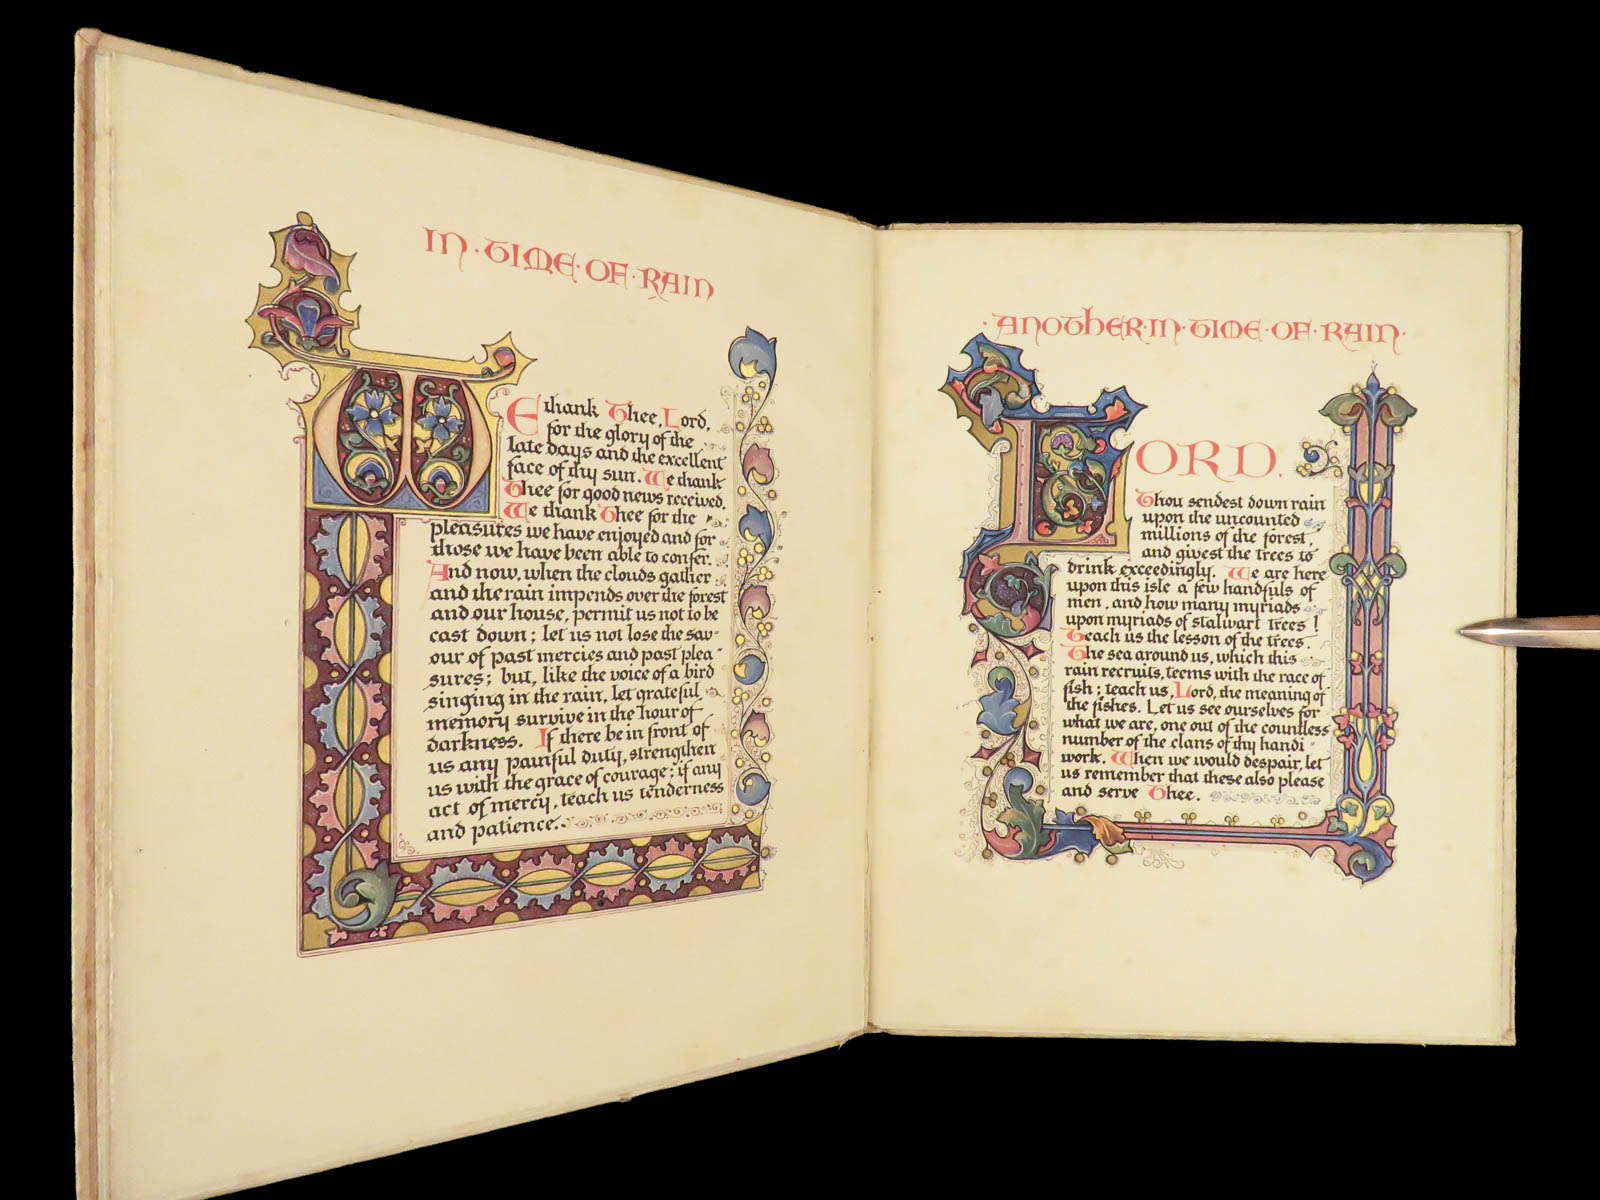 IN · TIME · OF · RAIN
WE thank Thee, Lord,
for the glory of the
late days and the excellent
face of thy sun. We thank
Thee for good news received.
We thank Thee for the
pleasures we have enjoyed and for
those we have been able to confer.
And now, when the clouds gather
and the rain impends over the forest
and our house, permit us not to be
cast down; let us not lose the sav-
our of past mercies and past plea-
sures; but, like the voice of a bird
singing in the rain, let grateful
memory survive in the hour of
darkness. If there be in front of
us any painful duty, strengthen
us with the grace of courage; if any
act of mercy, teach us tenderness
and patience.
· ANOTHER · IN · TIME · OF · RAIN ·
LORD,
Thou sendest down rain
upon the uncounted
millions of the forest,
and givest the trees to
drink exceedingly. We are here
upon this isle a few handfuls of
men, and how many myriads
upon myriads of stalwart trees!
Teach us the lesson of the trees.
The sea around us, which this
rain recruits, teems with the race of
fish; teach us, Lord, the meaning of
the fishes. Let us see ourselves for
what we are, one out of the countless
number of the clans of thy handi-
work. When we would despair, let
us remember that these also please
and serve Thee.